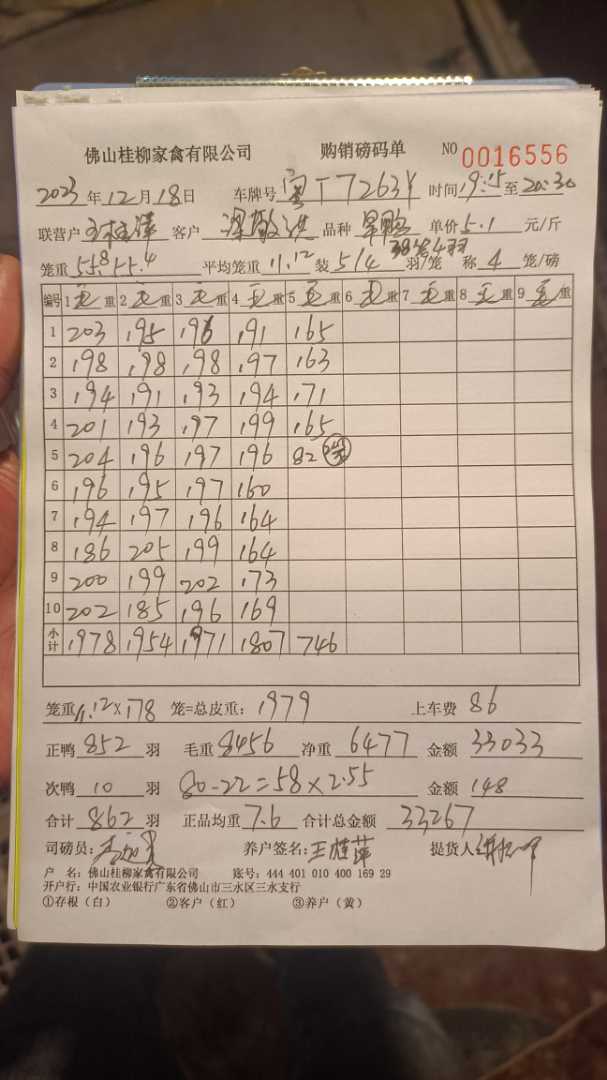 佛山桂柳家禽有限公司 购销磅码单 NO 0016556
2023年12月18日 车牌号 粤T7263Y 时间 19:15至20:30
联营户 客户 品种 单价5.1元/斤
38笼4羽
笼重 55.8 55.4 平均笼重 11.12 装 5/4 羽/笼 称 4 笼/磅
编号 1 毛重 2 毛重 3 毛重 4 毛重 5 毛重 6 毛重 7 毛重 8 毛重 9 毛重
1 203 195 196 191 165
2 198 198 198 197 163
3 194 191 193 194 171
4 201 193 197 199 165
5 204 196 197 196 82
6 196 195 197 160
7 194 197 196 164
8 186 205 199 164
9 200 199 202 173
10 202 185 196 169
小计 1978 1954 1971 1807 746
笼重 11.12×178 笼=总皮重: 1979 上车费 86
正鸭 852 羽 毛重 8456 净重 6477 金额 33033
次鸭 10 羽 80-22=58×2.55 金额 148
合计 862 羽 正品均重 7.6 合计总金额 33267
司磅员: 养户签名: 王桂萍 提货人
户 名: 佛山桂柳家禽有限公司 账号: 444 401 010 400 169 29
开户行: 中国农业银行广东省佛山市三水区三水支行
①存根（白） ②客户（红） ③养户（黄）